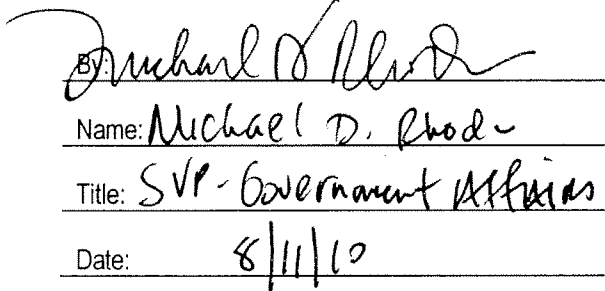 By: Michael D Rhode
Name: Michael D. Rhode
Title: SVP - Government Affairs
Date: 8/11/10